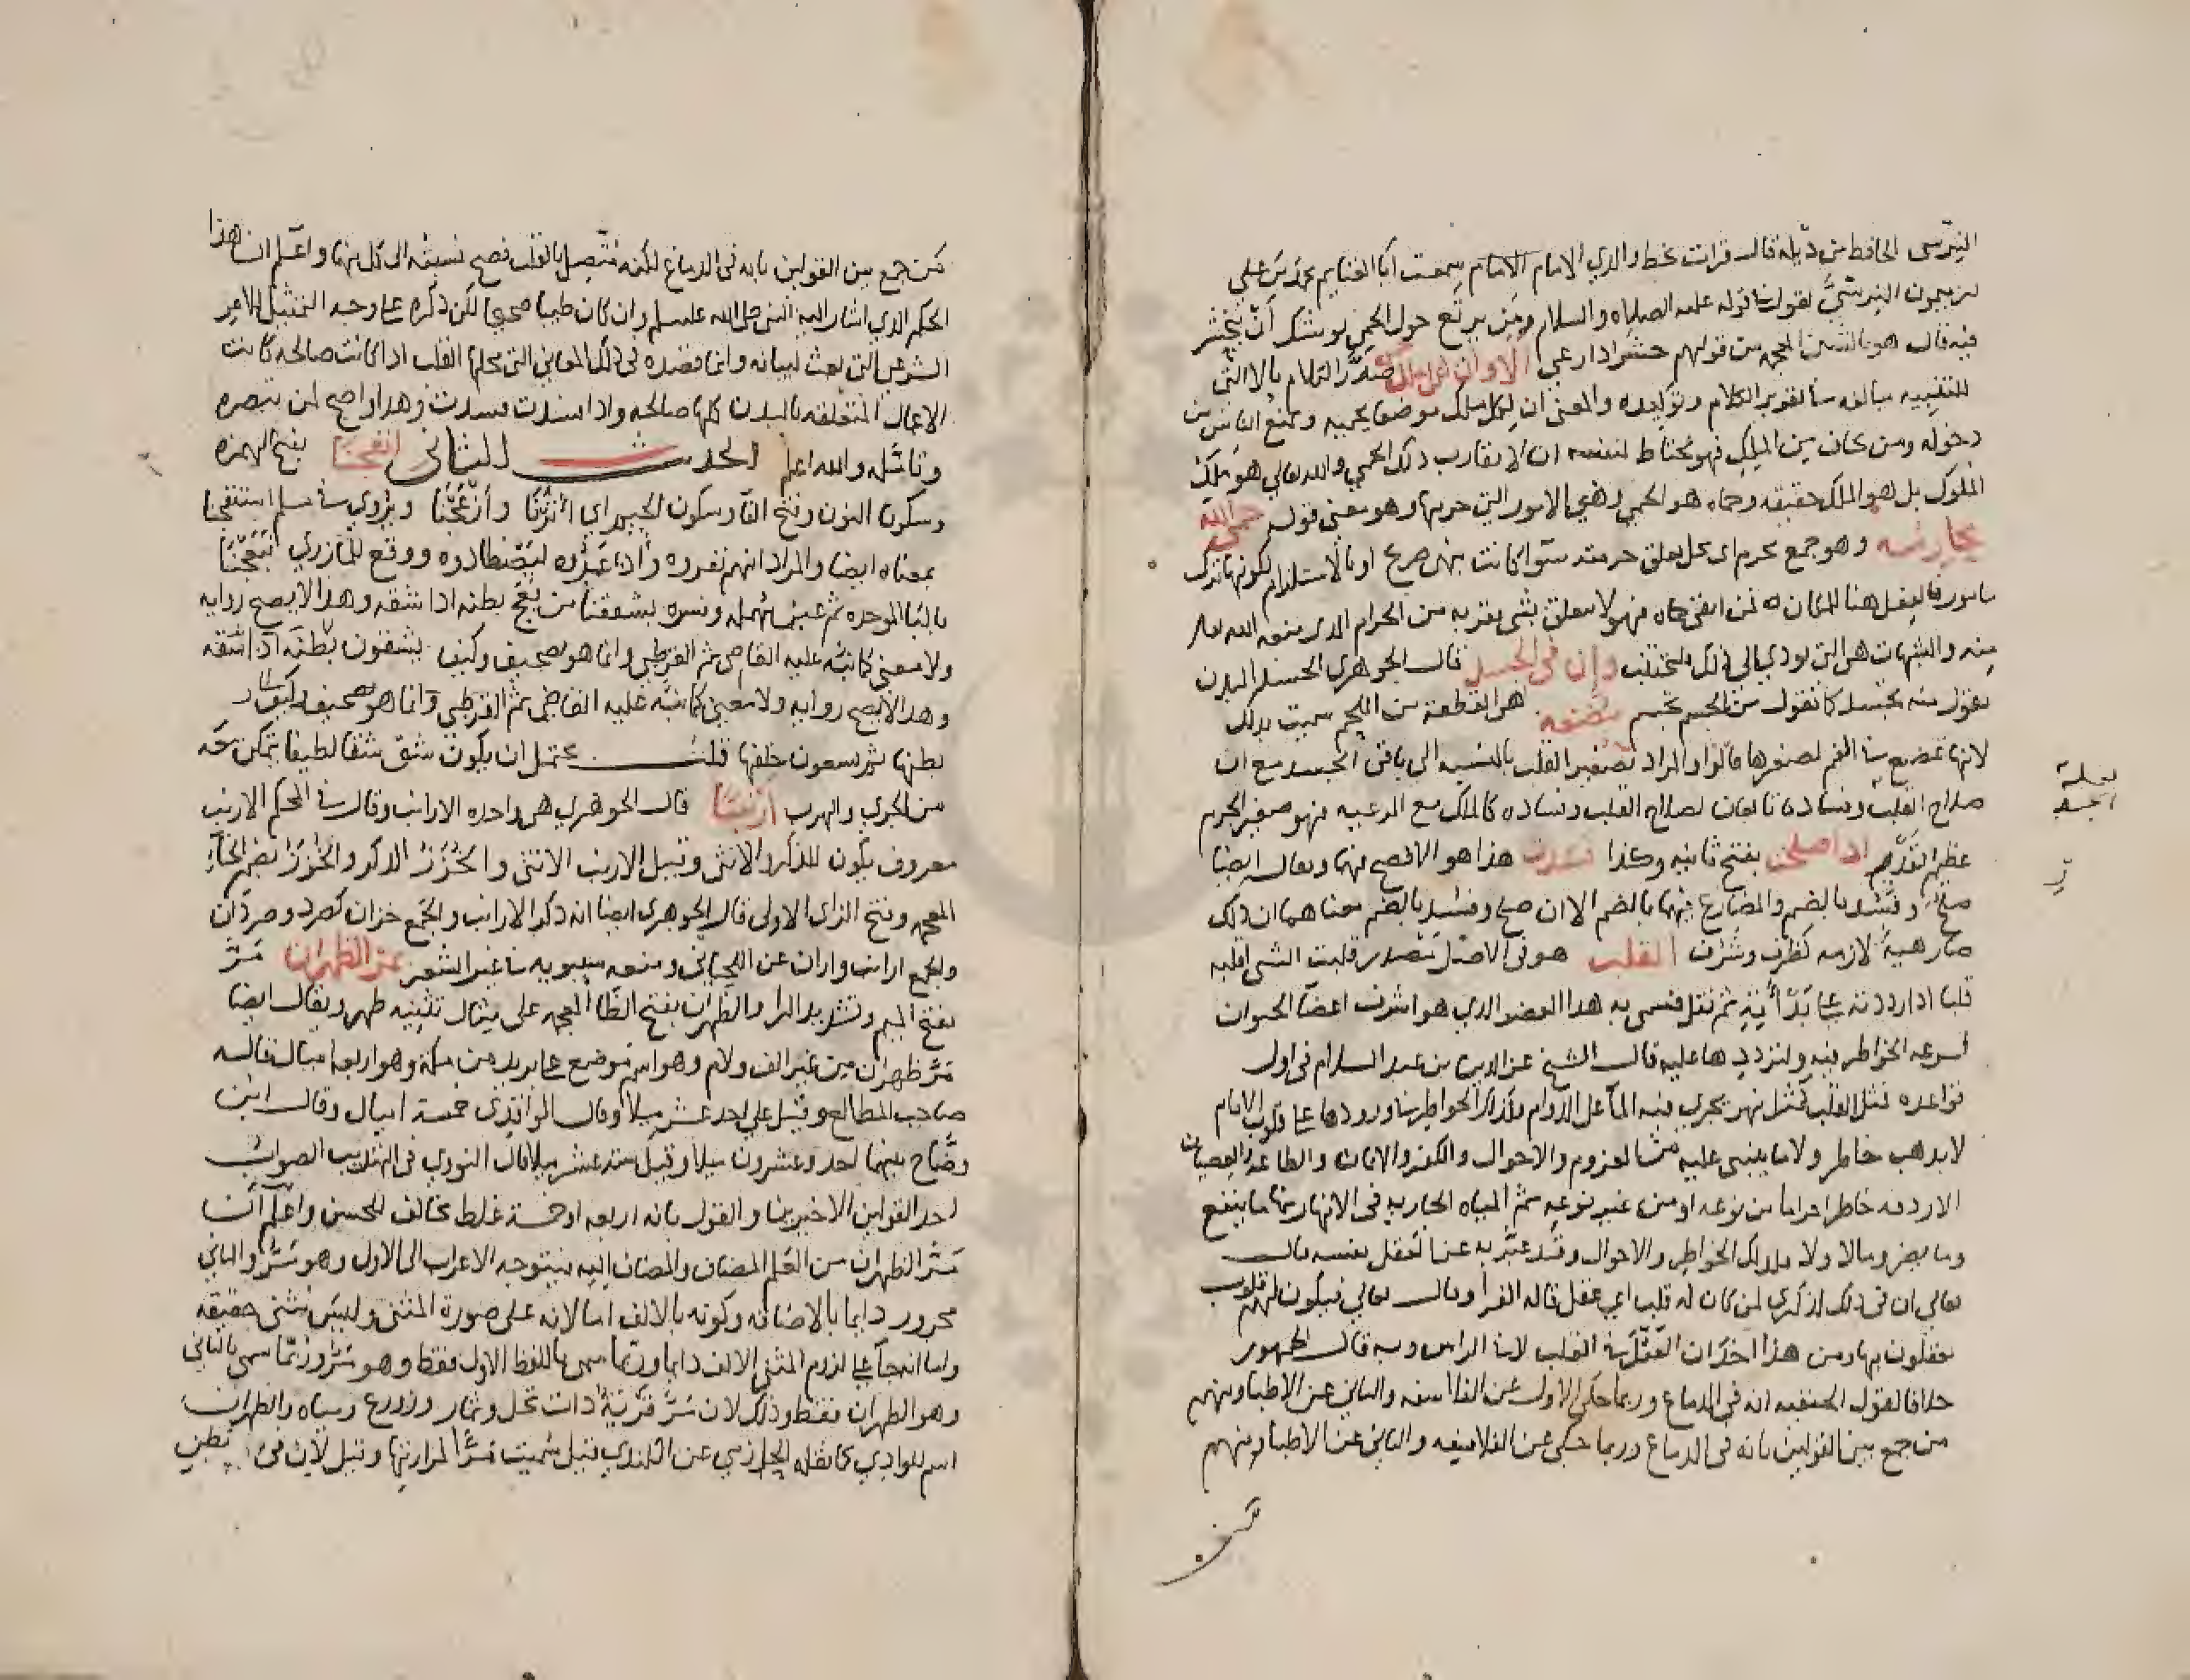 النرسي الحافظ من ديله قال قرات بخط والدي الامام الامام سمعت ابا الغنايم محمد بن علي
بن ميمون النرسي يقول في قوله عليه الصلاه والسلام ومن يرتع حول الحمى يوشك ان يجشر
فيه قال هو بالشين المعجمه من قولهم جشر اذا رعي الا وان لكل ملك حمى صدّر الكلام بالا التي
للتنبيه مبالغه في تقوير الكلام وتوكيده والمعنى ان لكل ملك موضعا يحميه ويمنع الناس من
دخوله ومن خاف من الملك فهو يحتاط لنفسه ان لا يقارب ذلك الحمى والله تعالى هو ملك
الملوك بل هو الملك حقيقه وحماه هو الحمى وهي الامور التي حرمها وهو معنى قوله حمى الله
محارمه وهو جمع محرم اي محل تعلق حرمته سوا كانت بنهي صريح او بالاستلزام لكونها ترك
مامور فالفعل هنا للمكان ه فمن اتقى حماه فهو لا يتعلق بشي يقربه من الحرام الذي منعه الله تعالى
منه والشبهات هي التي تودي الى ذلك فلتجتنب وان في الجسد قال الجوهري الجسد البدن
تقول منه تجسد كما تقول من الجسم تجسم مضغه هي القطعه من اللحم سميت بذلك
لانها تمضغ في الفم لصغرها قالوا والمراد تصغير القلب بالنسبه الى باقي الجسد مع ان
صلاح القلب وفساده تابعان لصلاح القلب وفساده كالملك مع الرعيه فهو صغير الجرم
عظيم القدر اذا صلحت بفتح ثانيه وكذا فسدت هذا هو الافصح فيهما ويقال ايضا
صلح وفسد بالضم والمضارع فيهما بالضم الا ان صلح وفسد بالضم معناهما ان ذلك
صار هيئة لازمه كظرف وشرف القلب هو في الاصل مصدر قلبت الشي اقلبه
قلبا اذا رددته على بدأته ثم نقل فسمي به هذا العضو الذي هو اشرف اعضا الحيوان
لسرعه الخواطر فيه ولترددها عليه قال الشيخ عز الدين بن عبد السلام في اول
قواعده مثل القلب كمثل نهر يجري فيه الما على الدوام وكذلك الخواطر في ورودها على قلوب الانام
لا يذهب خاطر ولا ما ينبني عليه من العزوم والاحوال والكفر والايمان والطاعه والعصيان
الا ردفه خاطر اخر اما من نوعه او من غير نوعه ثم المياه الجاريه في الانهار منها ما ينفع
وما يضر وما لا ولا وكذلك الخواطر والاحوال وقد عبر به عن العقل نفسه قال
تعالى ان في ذلك لذكرى لمن كان له قلب اي عقل قاله الفرا وقال تعالى فيكون لهم قلوب
يعقلون بها ومن هذا اخذ ان العقل في القلب لا في الراس وبه قال الجمهور
خلافا لقول الحنفيه انه في الدماغ وربما حكى الاول عن الفلاسفه والثاني عن الاطبا ومنهم
من جمع بين القولين بانه في الدماغ وربما حكى عن الفلاسفه والثاني عن الاطبا ومنهم
الجسد
من جمع بين القولين بانه في الدماغ لكنه متصل بالقلب فصح نسبته الى كل منهما واعلم ان هذا
الحكم الذي اشار اليه النبي صلى الله عليه وسلم وان كان طبيا صحيحا لكن ذكره على وجه التمثيل للامر
الشرعي الذي بعث لبيانه وانما قصده في ذلك المعاني التي محلها القلب اذا كانت صالحه كانت
الاعمال المتعلقه بالبدن كلها صالحه واذا فسدت فسدت وهذا واضح لمن تبصره
وتامله والله اعلم الحديث الثاني انفجنا بفتح الهمزه
وسكون النون وفتح الفا وسكون الجيم اي اثرنا وازعجنا ويروي في مسلم استنفجنا
بمعناه ايضا والمراد انهم نفروه واذاعروه ليصطادوه ووقع للمازري فبعجنا
بالبا الموحده ثم عين مهمله وفسره بشققنا من بعج بطنه اذا شقه وهذا لا يصح روايه
ولا معنى كما نبه عليه القاضي ثم القرطبي وانما هو تصحيف وكيف يشقون بطنه اذا شقه
وهذا لا يصح روايه ولا معنى كما نبه عليه القاضي ثم القرطبي وانما هو تصحيف وكيف
بطنها ثم يسعون خلفها قلت يحتمل ان يكون شق شقا لطيفا يتمكن معه
من الجري والهرب ارنبا قال الجوهري هي واحده الارانب وقال في المحكم الارنب
معروف يكون للذكر والانثى وقيل الارنب الانثى والخزز الذكر والخزز بضم الخاء
المعجمه وفتح الزاي الاولى قال الجوهري ايضا انه ذكر الارانب والجمع خزان كصرد وصردان
والجمع ارانب واران عن اللحياني ومنعه سيبويه في غير الشعر بمر الظهران مَرّ
بفتح الميم وتشديد الرا والظهران بفتح الظا المعجمه على مثال تثنيه ظهر ويقال ايضا
مَرّ ظهران من غير الف ولام وهو اسم موضع على بريد من مكه وهو اربعه اميال قاله
صاحب المطالع وقيل على احد عشر ميلا وقال الواقدي خمسه اميال وقال ابن
وضاح بينهما احد وعشرون ميلا وقيل سته عشر ميلا قال النووي في التهذيب الصواب
احد القولين الاخيرين والقول بانه اربعه او خمسة غلط مخالف للحسن واعلم ان
مَرّ الظهران من العلم المضاف والمضاف اليه فيتوجه الاعراب الى الاول وهو مَرّ والثاني
مجرور دايما بالاضافه وكونه بالالف اما لانه على صورة المثنى وليس مثنى حقيقه
واما انه جا على لزوم المثنى الالف دايما وربما سمي باللفظ الاول فقط وهو مَرّ وربما سمي بالثاني
وهو الظهران فقط وذلك لان مَرّ قرية ذات نخل وثمار وزرع ومياه والظهران
اسم للوادي كما نقله الحازمي عن الكندي قيل سميت مرا لمرارتها وقيل لان في بطن